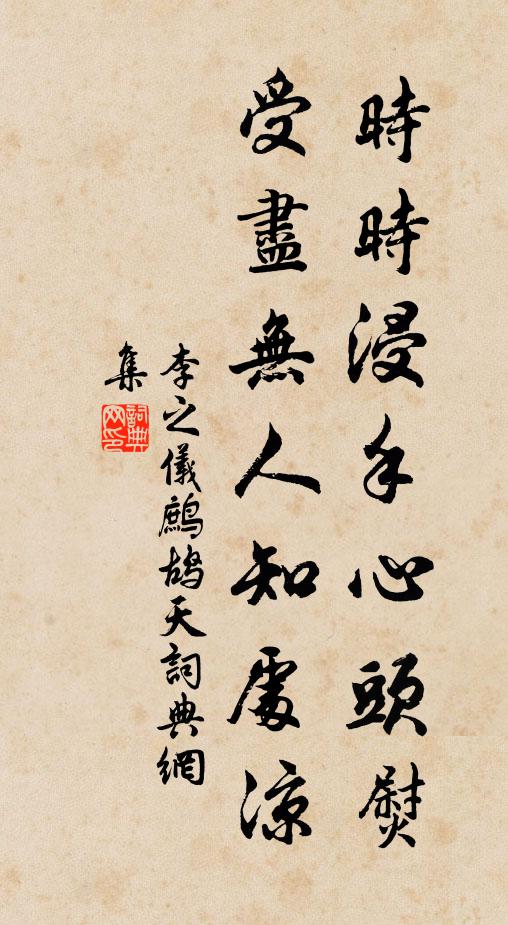 時時浸手心頭熨
受盡無人知處涼
李之儀鷓鴣天詞典網
集
詞典
网印